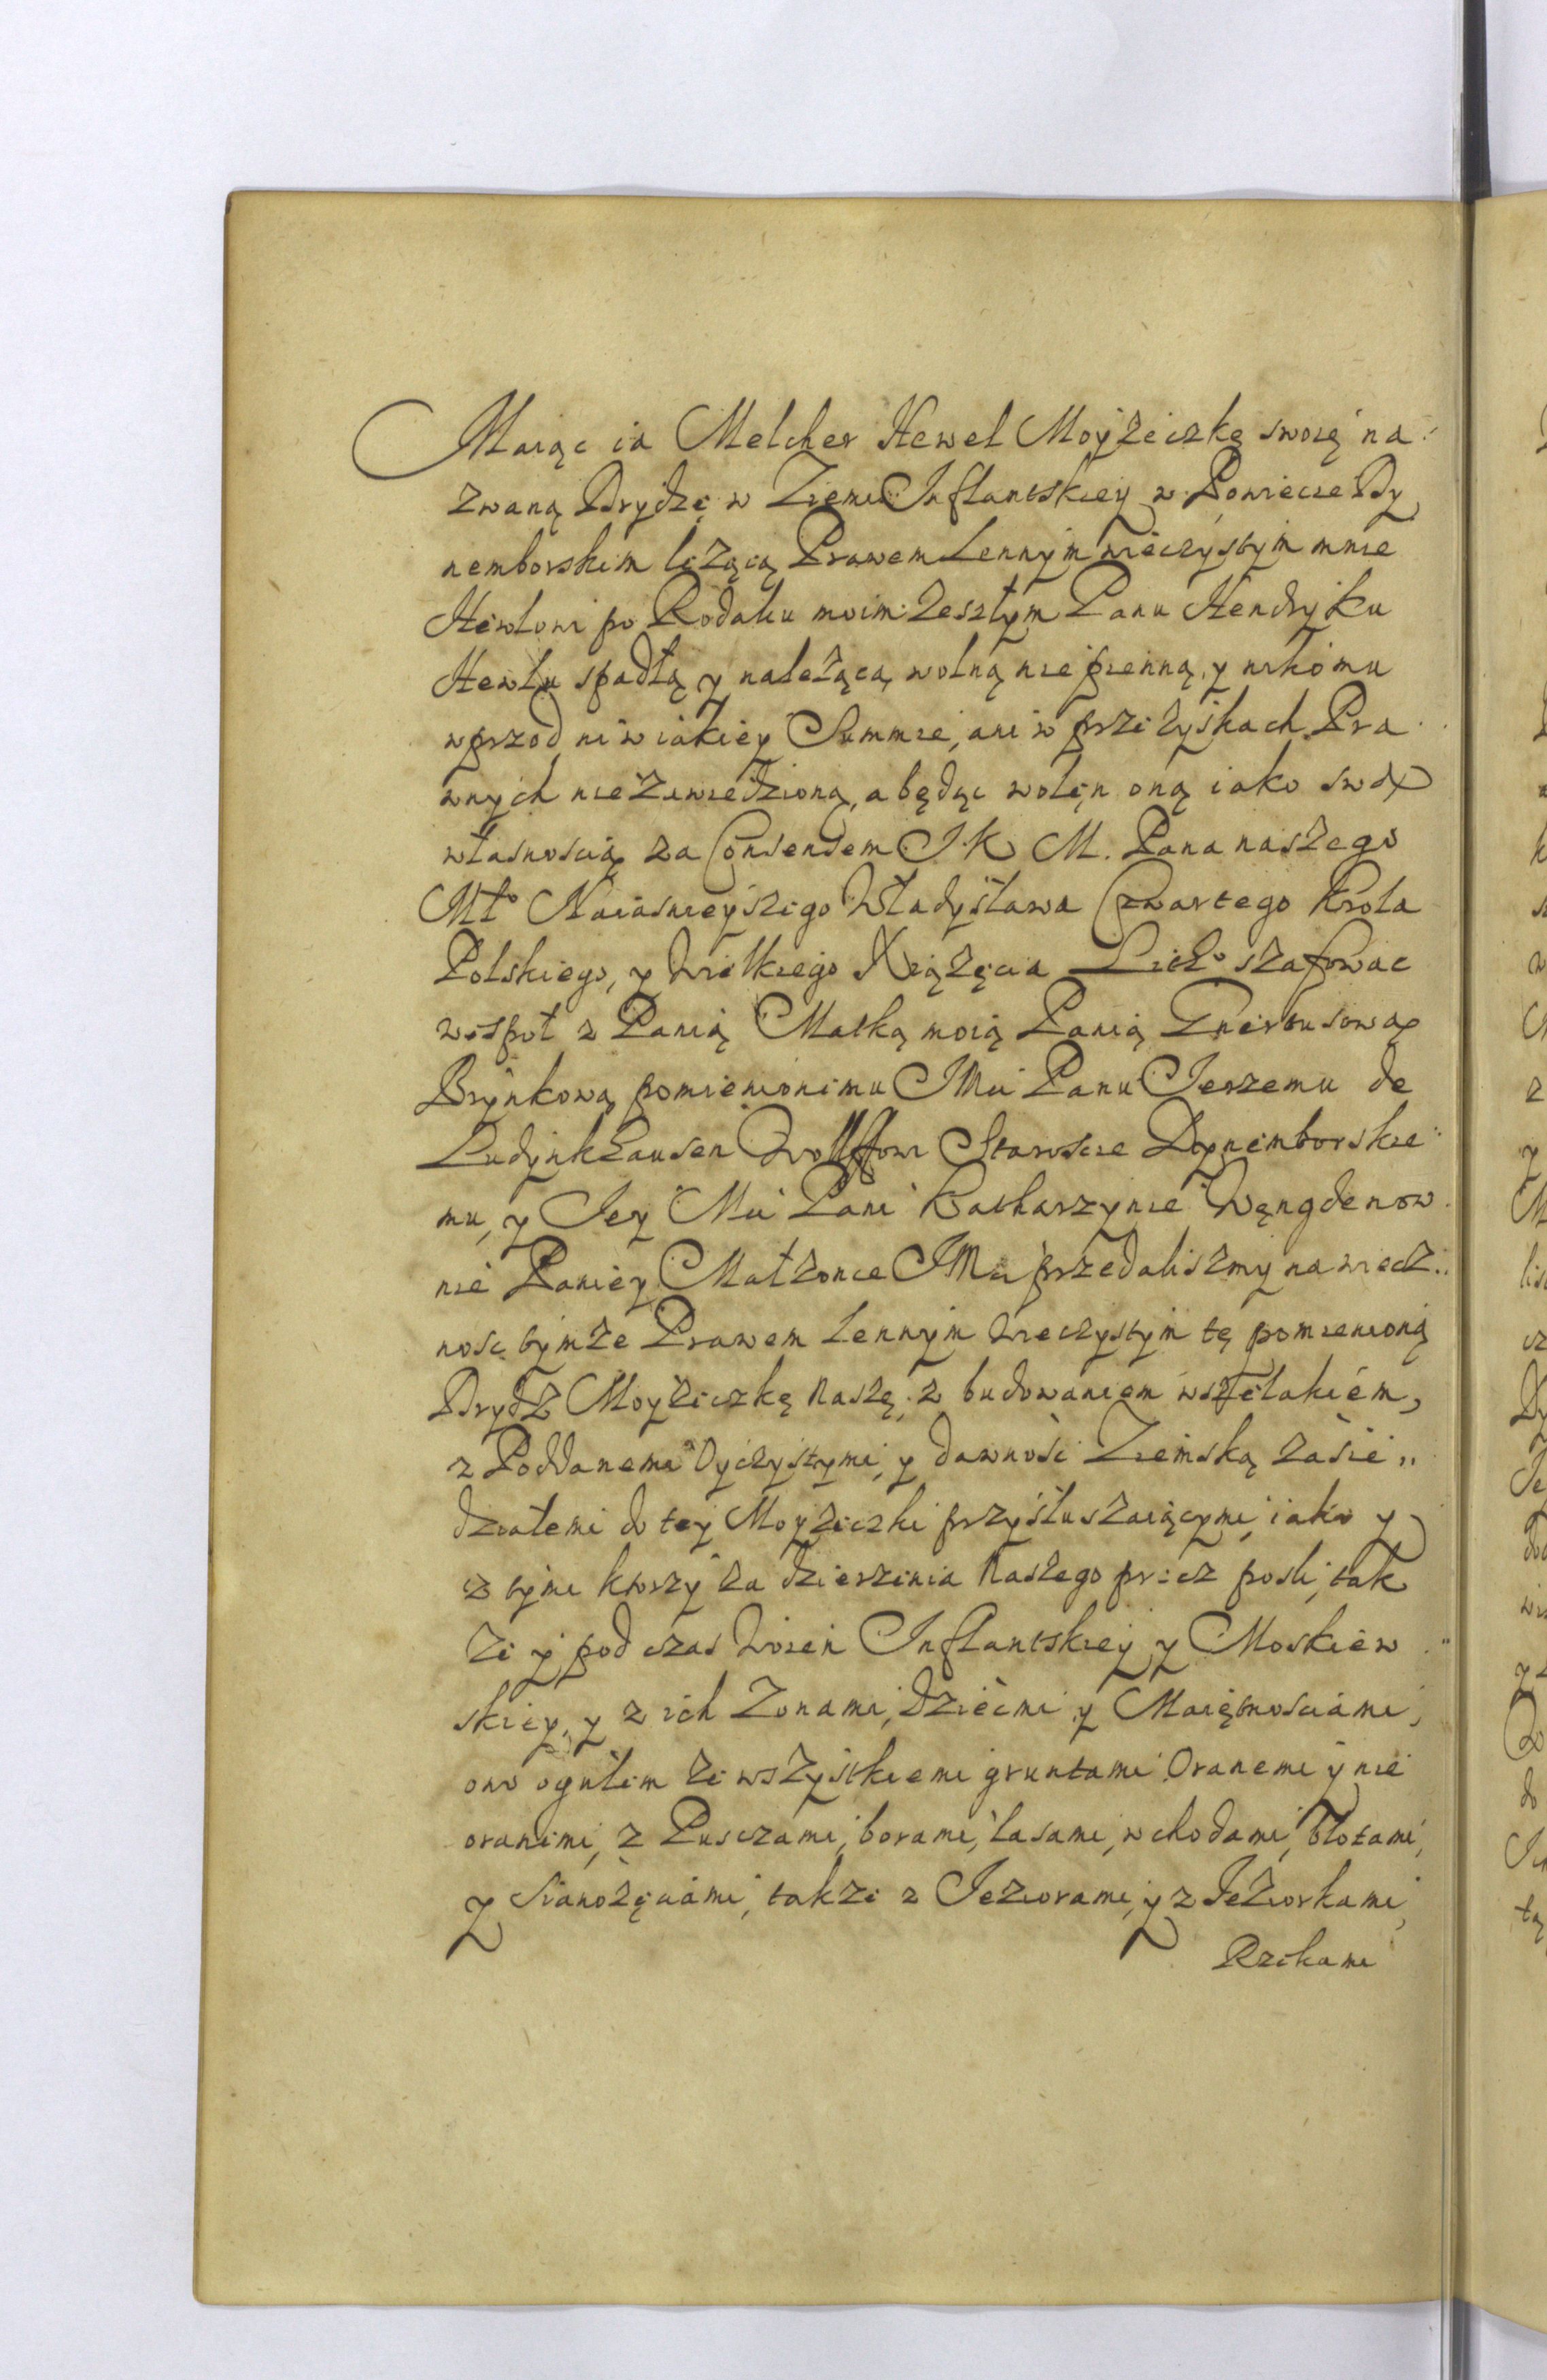 Maiąc ia Melcher Hewel Moyżeczkę swoię na
zwaną Drydzę w Ziemi Inflantskiey w Powiecie Dy
nemborskim leżącą Prawem Lennym wieczystym mnie
Hewlowi po Rodaku moim zeszłym Panu Hendryku
Hewlu spadłą y należącą, wolną niepienną, y nikomu
wprzod ni w iakiey Summie, ani w przezyskach Pra
wnych nie zawiedzioną, a będąc wolen oną iako swą
własnoscią za Consensem J. K. M. Pana naszego
Mło Naiasnieyszego Władysława Czwartego Krola
Polskiego, y Wielkiego Xiążęcia Litō szafowac
wespoł z Panią Matką moią Panią
Brynkową pomienionemu JMci Panu Jerzemu de
Ludynkhausen Wolffowi Staroscie Dynemborskie
mu, y Jey Mci Pani Katharzynie Węngdenow
nie Paniey Małzonce JMci przedalismy na wiecz
nosc tymże Prawem Lennym Wieczystym tę pomienioną
Drydz Moyżeczkę Naszę, z budowaniem wszelakiem,
z Poddanemi Oyczystymi, y dawnosci Ziemską zasie„
działemi do tey Moyżeczki przysłuszaiącymi, iako y
z tymi ktorzy za dzierzenia Naszego precz poszli, tak
ze y pod czas Woien Inflantskiey y Moskiew
skiey, y z ich Zonami, dziećmi y Maiętnosciami,
owo ogułem ze wszystkiemi gruntami Oranemi y nie
oranemi, z Pusczami, borami, lasami, wchodami, błotami,
y Sianożęciami, takze z Jeziorami, y z Jeziorkami,
Rzekami